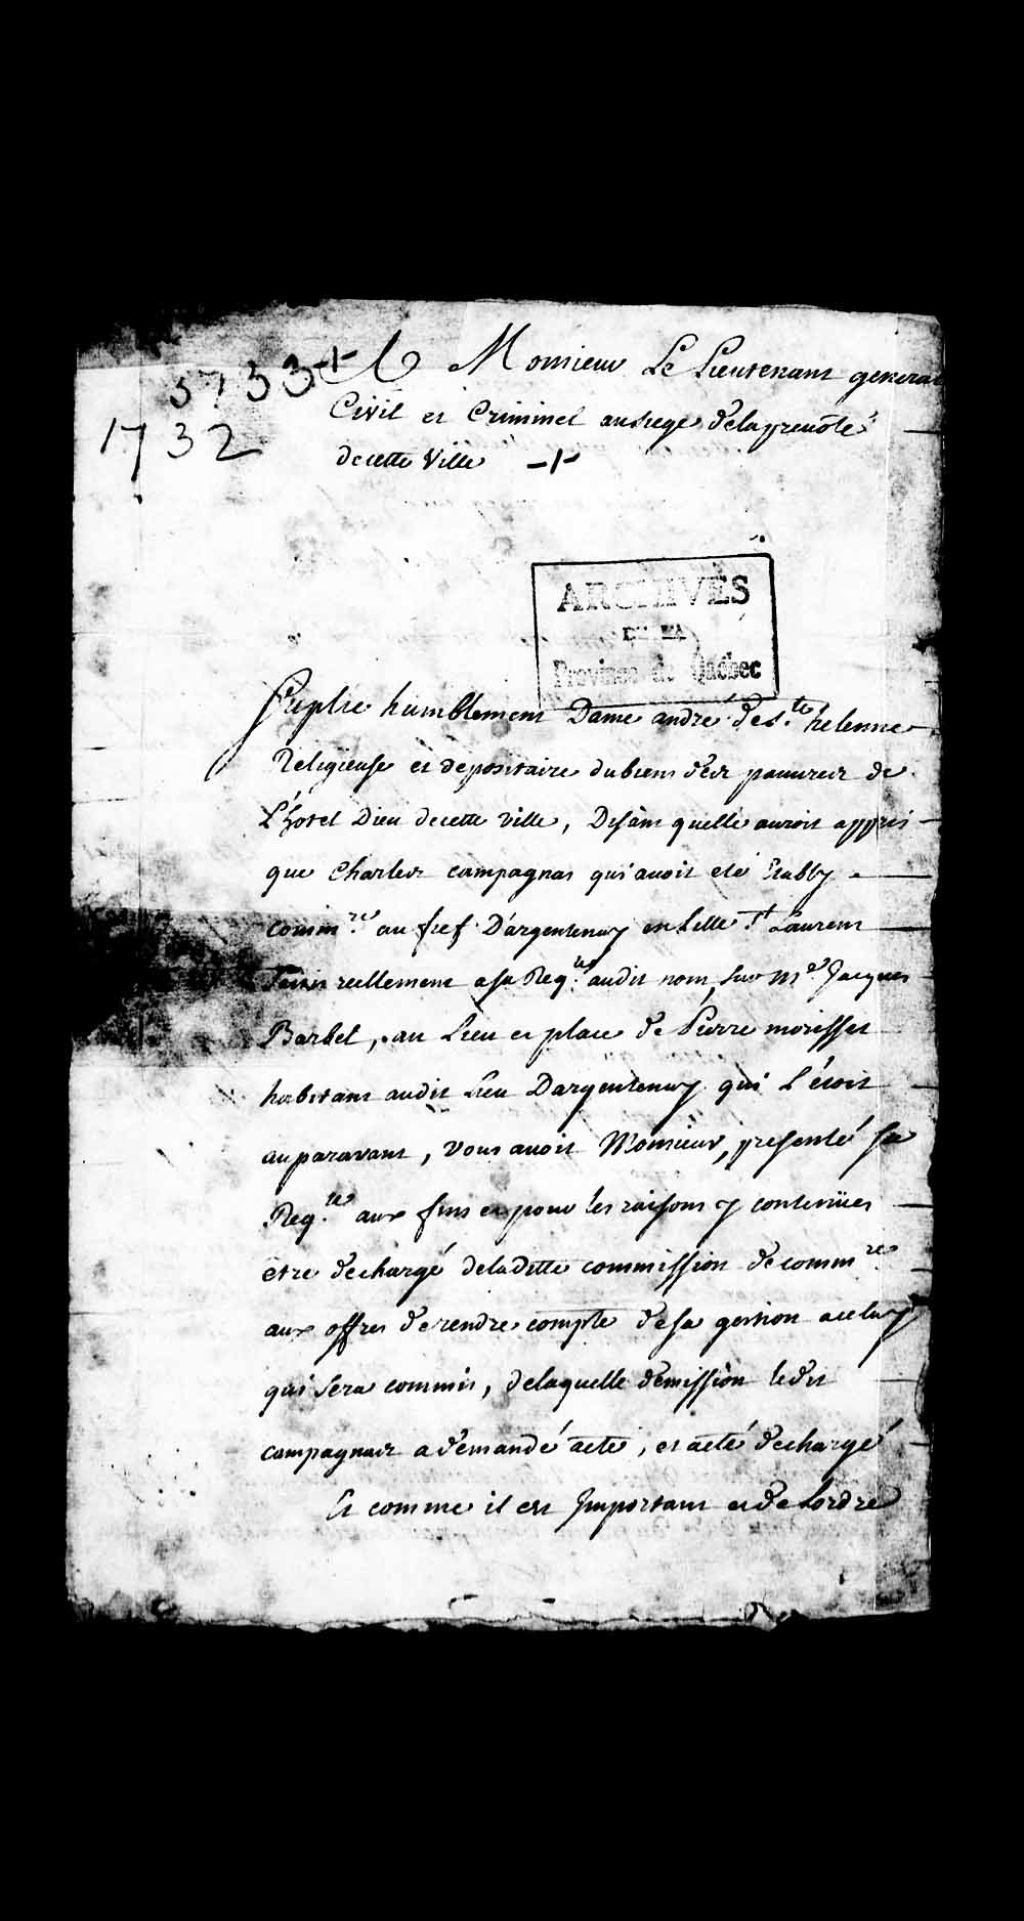 5733
1732
A Monsieur Le Lieutenant general
Civil et Criminel au siege delaprevôté
decette Ville
ARCHIVES
DE LA
Province de Québec
Suplie humblement Dame andré de s.te helenne
Religieuse et depositaire dubiens des pauvres de
L'hotel Dieu decette ville, Disant quelle auroit appris
que Charles campagnas qui avoit eté Etably
comm.re au fief D'argentenay en Lille St Laurens
saisis reellement a sa Req.te audit nom, sur Me. Jacques
Barbel, au Lieu et place de Pierre morisset
habitant audit Lieu Dargentenay qui L'étoit
auparavant, vous avoit Monsieur, presenté sa
Req.te aux fins et pour les raisons y contenües
etre dechargé deladitte commission de comm.re
aux offres de rendre compte de sa gestion a celuy
qui sera commis, delaquelle demission ledit
campagnas a demandé acte, et acté dechargé
Et comme il est Important et de Lordre